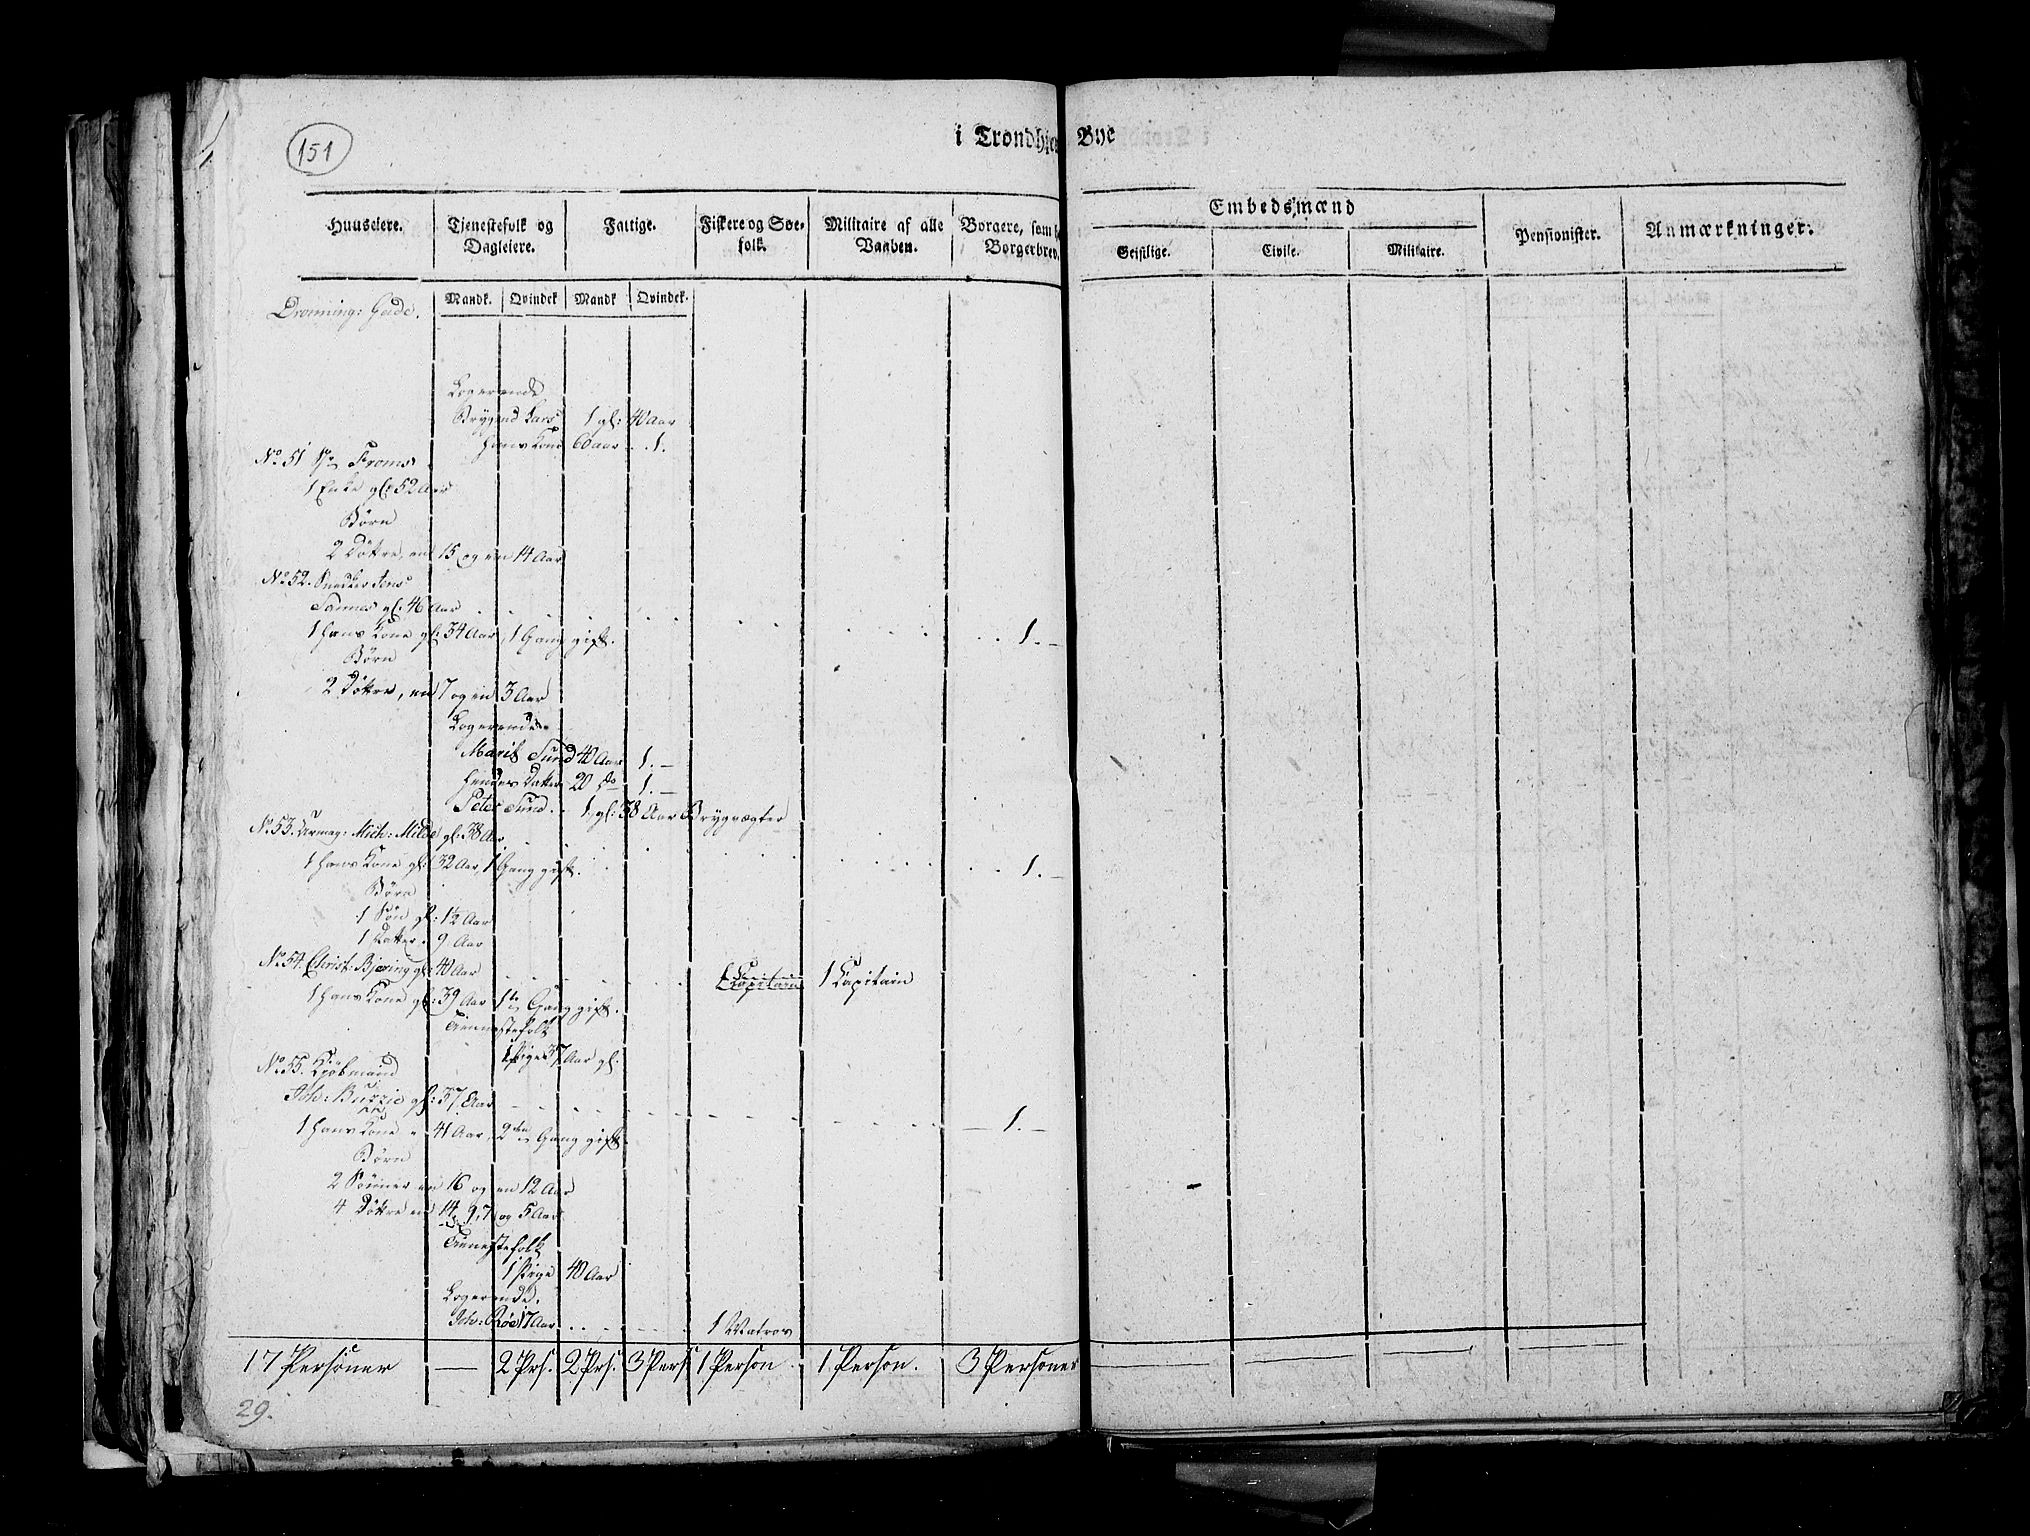 151
i Trondhjem Bye
Huuseiere.
Tjenestefolk og Dagleiere.
Fattige.
Fiskere og Søefolk.
Militaire af alle Vaaben.
Borgere, som
Borgerbrev.
Embedsmænd
Geistlige.
Civile.
Militaire.
Pensionister.
Anmærkninger.
Mandk. Qvindek Mandk Qvindek.
Dronning: Gade.
Logerende
Lars 1 gl: 40 Aar
Hans Kone 60 Aar . . 1.
No 51 Froms
1 Enke gl: 52 Aar
Børn
2 Døttre, en 15 og en 14 Aar
No 52. Snedker Jens
Sannes gl: 46 Aar
1 Hans Kone gl: 34 Aar, 1 Gang gift. 1. –
Børn
2 Døttre, en 7 og en 3 Aar
Logerende
Marit Sund 40 Aar 1. –
Hendes Datter 20 do 1. –
Peter Sund. . 1 gl: 38 Aar Brygvægter
No 53. Mich: Milde gl: 38 Aar
1 Hans Kone gl: 32 Aar, 1 Gang gift. 1. –
Børn
1 Søn gl: 12 Aar
1 Datter. 9 Aar
No 54. Christ: Bjering gl: 40 Aar 1 Kapitain 1 Kapitain
1 Hans Kone gl: 39 Aar 1te Gang gift.
Tiennestefolk
1 Pige 37 Aar gl:
No 55. Kjøbmand
Joh: Buzzie gl: 37 Aar
1 Hans Kone " 41 Aar, 2den Gang gift – 1. –
Børn
2 Sønner en 16 og en 12 Aar
4 Døttre en 14, 9, 7 og 5 Aar
Tienestefolk
1 Pige 40 Aar
Logerende.
Joh: Røe 17 Aar . . 1 Matros
17 Personer — 2 Prs. 2 Prs. 3 Pers 1 Person. 1 Person. 3 Personer
29.